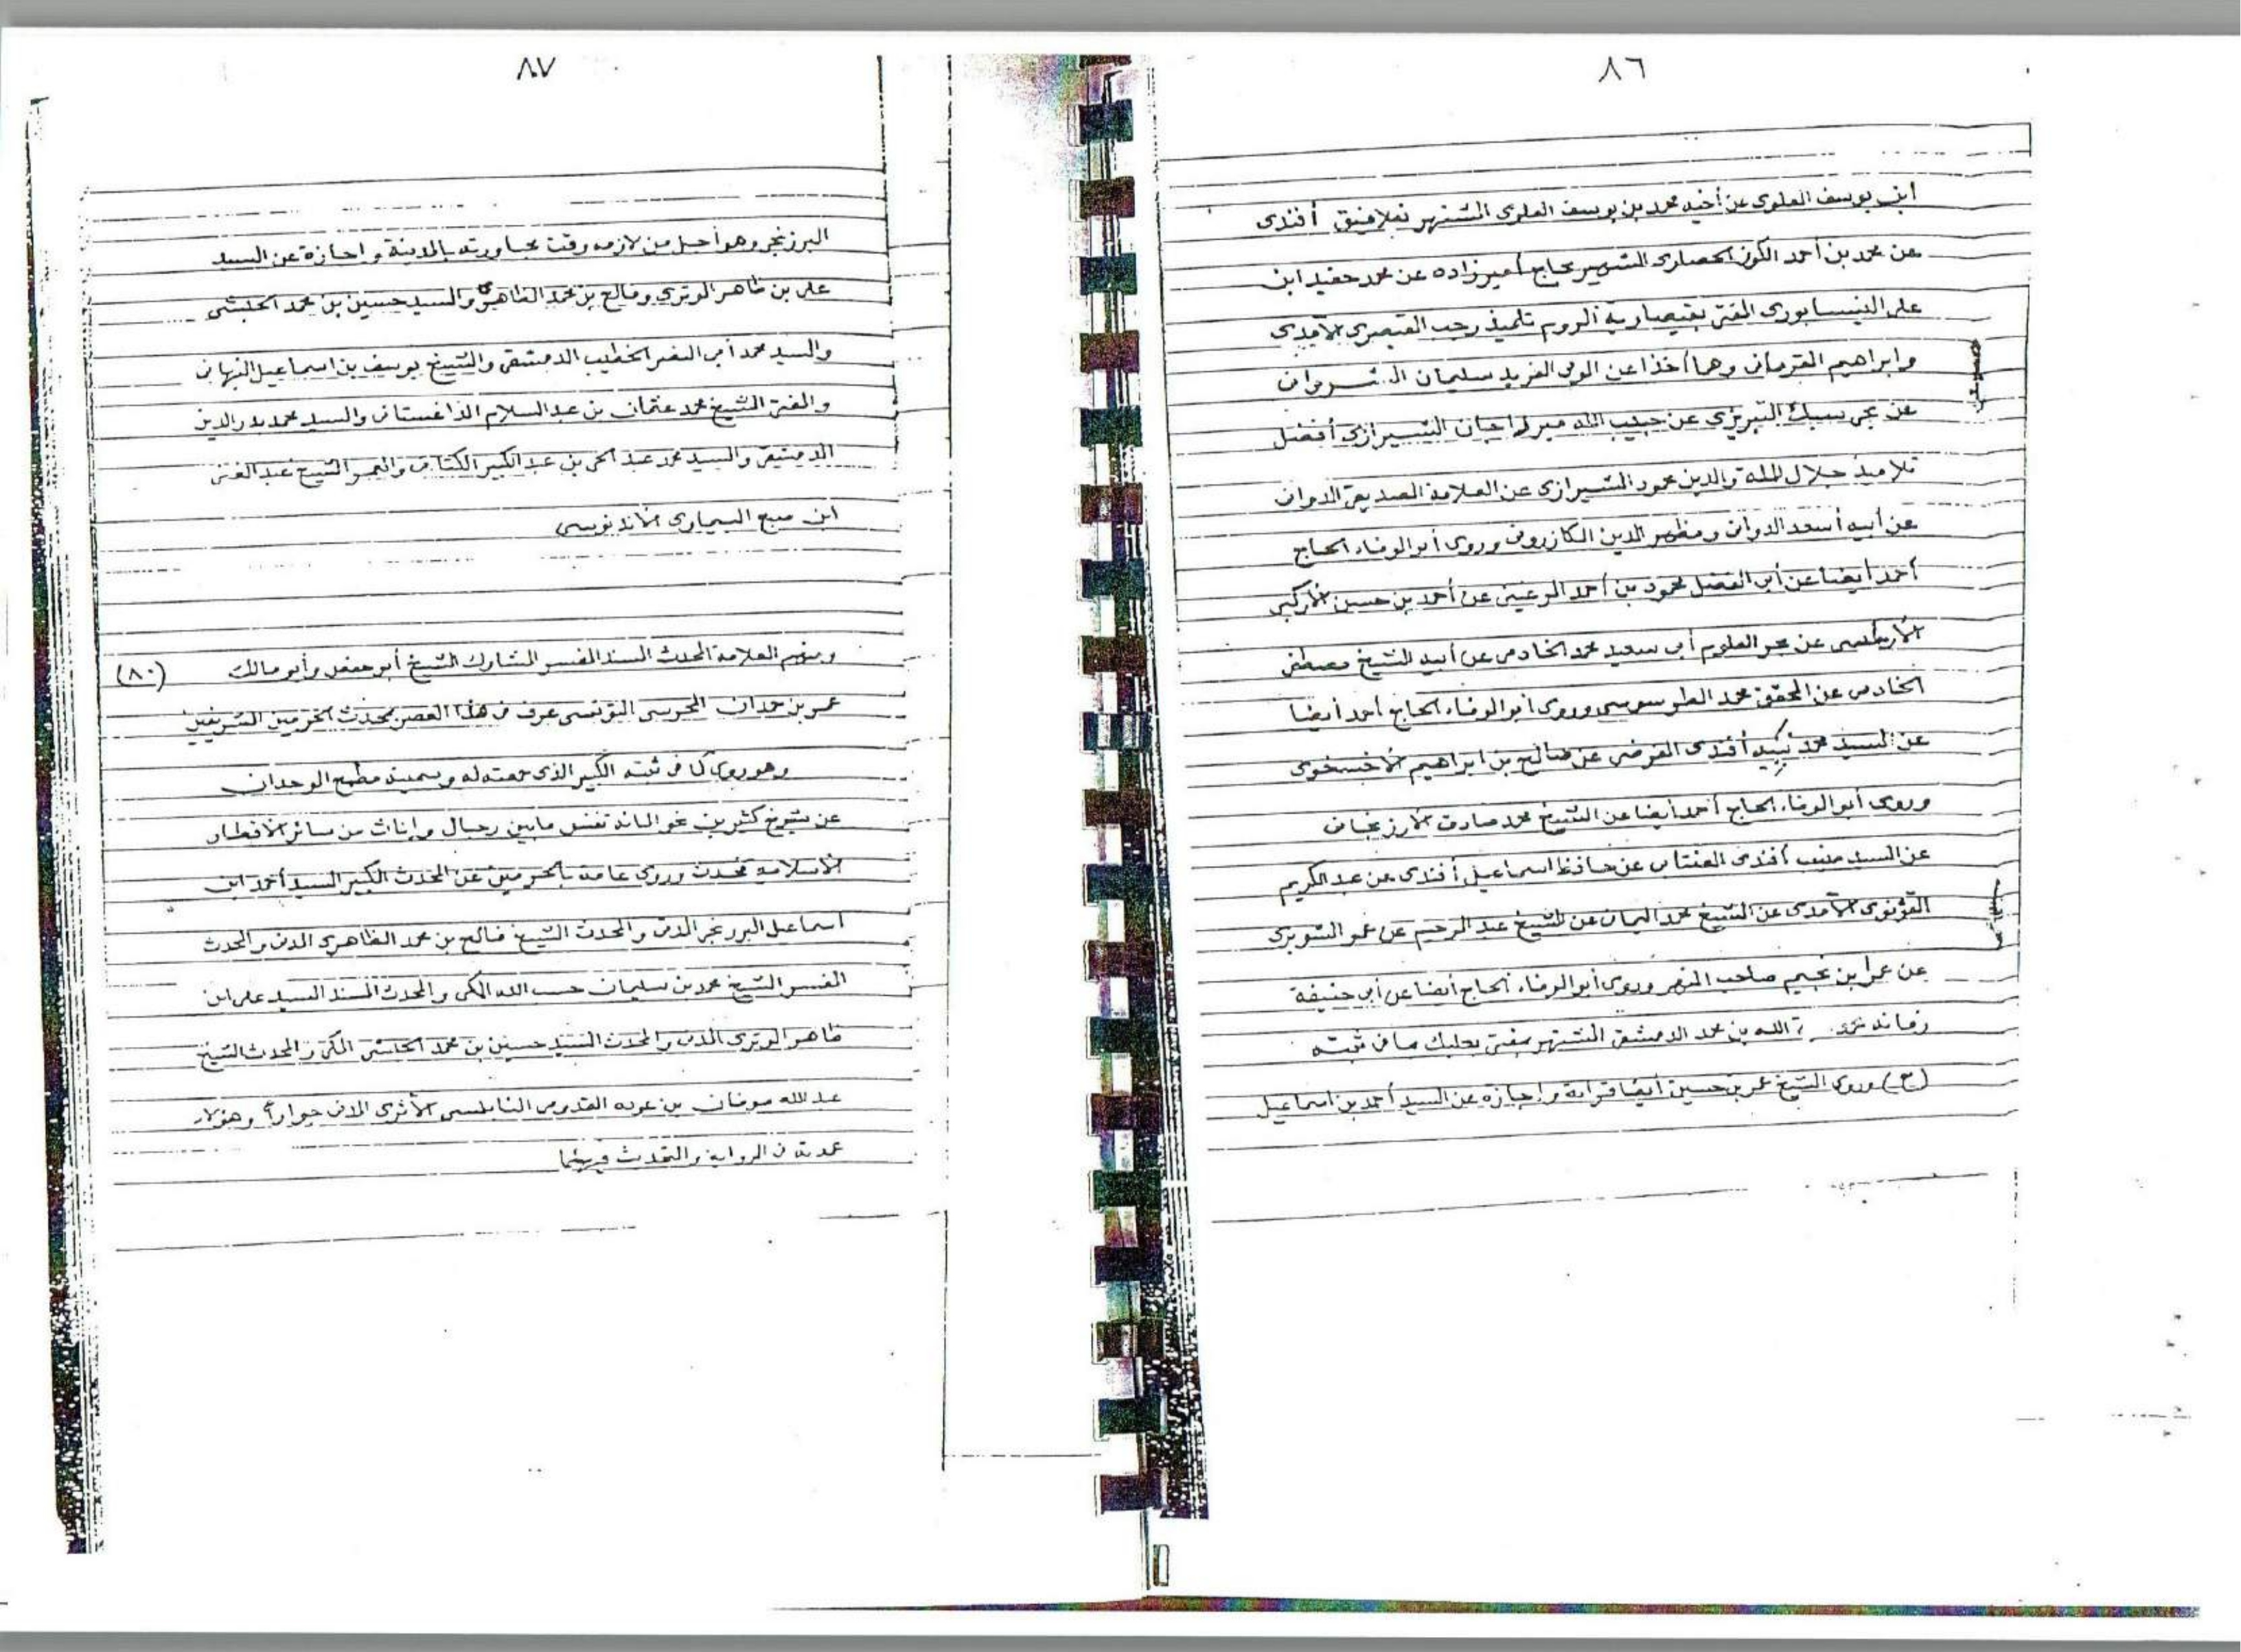 ٨٦
ابن يوسف العلوي عن أخيه محمد بن يوسف العلوي الشهير بملا فيق أفندى
عن محمد بن أحمد الكوز الحصارى الشهير بحاج أمير زاده عن محمد حفيد ابن
على النيسابورى المفتى بقيصارية الروم تلميذ رجب القيصرى الآمدى
وابراهيم القرمانى وهما أخذا عن الولى الفريد سليمان الشروانى
عن التبريزى عن حبيب الله ميرزا جان الشيرازى أفضل
تلاميذ جلال الملة والدين محمود الشيرازى عن العلامة الصديقى الدوانى
عن أبيه أسعد الدوانى ومظهر الدين الكازرونى وروى أبو الوفاء الحاج
أحمد أيضا عن أبى الفضل محمود بن أحمد عن أحمد بن حسين
عن بحر العلوم أبى سعيد محمد الخادمى عن أبيه الشيخ مصطفى
الخادمى عن المحقق محمد الطرسوسى وروى أبو الوفاء الحاج أحمد أيضا
عن السيد محمد أفندى الفرضى عن صالح بن ابراهيم
وروى أبو الوفاء الحاج أحمد أيضا عن الشيخ محمد صادق الأرزنجانى
عن السيد منيب أفندى العنتابى عن حافظ اسماعيل أفندى عن عبد الكريم
القونوى الآمدى عن الشيخ محمد اليمانى عن الشيخ عبد الرحيم عن عمر الشوبرى
عن عمر ابن نجيم صاحب النهر وروى أبو الوفاء الحاج أيضا عن أبى حنيفة
زمانه الله بن محمد الدمشقى الشهير بمفتى بعلبك ما فى ثبته
(ح) وروى الشيخ عمر بن حسين أيضا قراءة واجازة عن السيد أحمد بن اسماعيل
٨٧
البرزنجى وهو أجل من لازمه وقت مجاورته بالمدينة واجازة عن السيد
على بن ظاهر الوترى وفالح بن محمد الظاهرى والسيد حسين بن محمد الحبشى
والسيد محمد أبى النصر الخطيب الدمشقى والشيخ يوسف بن اسماعيل النبهانى
والمفتى الشيخ محمد عثمان بن عبد السلام الداغستانى والسيد محمد بدر الدين
الدمشقى والسيد محمد عبد الحى بن عبد الكبير الكتانى والمعمر الشيخ عبد الغنى
ابن صبح البيماوى الأندنوسى
ومنهم العلامة المحدث المسند المفسر المشارك الشيخ أبو حفص وأبو مالك (٨٠)
عمر بن حمدان المحرسى التونسى عرف فى هذا العصر بمحدث الحرمين الشريفين
وهو روى كما فى ثبته الكبير الذى جمعته له وسميته مطمح الوجدان
عن شيوخ كثيرين نحو المائة نفس مابين رجال وإناث من سائر الأقطار
الاسلامية محدث وروى عامة بالحرمين عن المحدث الكبير السيد أحمد ابن
اسماعيل البرزنجى المدنى والمحدث الشيخ فالح بن محمد الظاهرى المدنى والمحدث
المفسر الشيخ محمد بن سليمان حسب الله المكى والمحدث المسند السيد على ابن
ظاهر الوترى المدنى والمحدث السيد حسين بن محمد الحبشى المكى والمحدث الشيخ
عبد الله صوفان بن عوده القدومى النابلسى الأثرى المدنى جواراً وهؤلاء
عمدته فى الرواية والتحدث فيهما